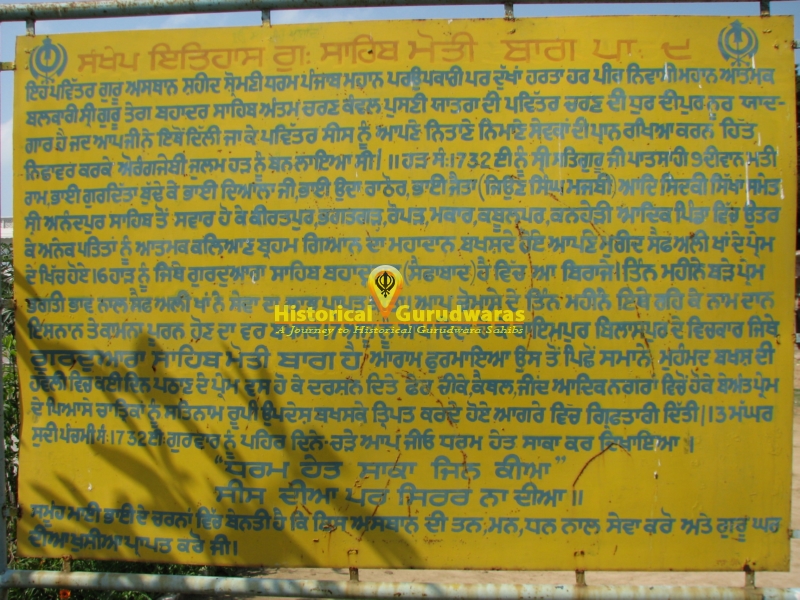 ਸੰਖੇਪ ਇਤਿਹਾਸ ਗੁ: ਸਾਹਿਬ ਮੋਤੀ ਬਾਗ ਪਾ: ੯
ਇਹ ਪਵਿੱਤਰ ਗੁਰੂ ਅਸਥਾਨ ਸ਼ਹੀਦ ਸ੍ਰੋਮਣੀ ਧਰਮ ਪੰਜਾਬ ਮਹਾਨ ਪਰਉਪਕਾਰੀ ਪਰ ਦੁੱਖਾਂ ਹਰਤਾ ਹਰ ਪੀਰ ਨਿਵਾਸੀ ਮਹਾਨ ਆਤਮਕ
ਬਲਕਾਰੀ ਸ੍ਰੀ ਗੁਰੂ ਤੇਗ ਬਹਾਦਰ ਸਾਹਿਬ ਅੰਤਮ ਚਰਣ ਕੰਵਲ ਪੁਸਣੀ ਯਾਤਰਾ ਦੀ ਪਵਿੱਤਰ ਚਰਣ ਦੀ ਧੂਰ ਦੀ ਪੂਰਨੂਰ ਯਾਦ-
ਗਾਰ ਹੈ ਜਦ ਆਪ ਜੀ ਨੇ ਇਥੋਂ ਦਿੱਲੀ ਜਾ ਕੇ ਪਵਿੱਤਰ ਸੀਸ ਨੂੰ ਆਪਣੇ ਨਿਤਾਣੇ ਨਿਮਾਣੇ ਸੇਵਕਾਂ ਦੀ ਪ੍ਰਾਨ ਰਖਿਆ ਕਰਨ ਹਿੱਤ
ਨਿਛਾਵਰ ਕਰਕੇ ਔਰੰਗਜੇਬੀ ਜ਼ੁਲਮ ਹੜ ਨੂੰ ਬੰਨ ਲਾਇਆ ਸੀ। ॥ ਹੜ ਸੰ: 1732 ਈ ਨੂੰ ਸ੍ਰੀ ਸਤਿਗੁਰੂ ਜੀ ਪਾਤਸ਼ਾਹੀ 9 ਦੀਵਾਨ ਮਤੀ
ਰਾਮ, ਭਾਈ ਗੁਰਦਿੱਤਾ ਬੁੱਢੇ ਕੇ ਭਾਈ ਦਿਆਲਾ ਜੀ, ਭਾਈ ਉਦਾ ਰਾਠੌਰ, ਭਾਈ ਜੈਤਾ (ਜਿਉਣ ਸਿੰਘ ਮਜਬੀ) ਆਦਿ ਸਿਦਕੀ ਸਿੱਖਾਂ ਸਮੇਤ
ਸ੍ਰੀ ਅਨੰਦਪੁਰ ਸਾਹਿਬ ਤੋਂ ਸਵਾਰ ਹੋ ਕੇ ਕੀਰਤਪੁਰ, ਭਗਤਗੜ, ਰੋਪੜ, ਮਕਾਰ, ਕਬੂਲਪੁਰ, ਕਨਹੇੜੀ ਆਦਿਕ ਪਿੰਡਾਂ ਵਿੱਚ ਉਤਰ
ਕੇ ਅਨੇਕ ਪਤਿਤਾਂ ਨੂੰ ਆਤਮਕ ਕਲਿਆਣ ਬ੍ਰਹਮ ਗਿਆਨ ਦਾ ਮਹਾਂਦਾਨ ਬਖਸ਼ਦੇ ਹੋਏ ਆਪਣੇ ਮੁਰੀਦ ਸੈਫ ਅਲੀ ਖਾਂ ਦੇ ਪ੍ਰੇਮ
ਦੇ ਖਿੱਚ ਹੋਏ 16 ਹਾੜ ਨੂੰ ਜਿਥੇ ਗੁਰਦੁਆਰਾ ਸਾਹਿਬ (ਸੈਫਾਬਾਦ) ਹੈ ਵਿੱਚ ਆ ਬਿਰਾਜੇ। ਤਿੰਨ ਮਹੀਨੇ ਬੜੇ ਪ੍ਰੇਮ
ਭਗਤੀ ਭਾਵ ਨਾਲ ਸੈਫ ਅਲੀ ਖਾਂ ਨੇ ਸੇਵਾ ਆਪ ਚੌਮਾਸੇ ਦੇ ਤਿੰਨ ਮਹੀਨੇ ਇੱਥੇ ਰਹਿ ਕੇ ਨਾਮ ਦਾਨ
ਇਸ਼ਨਾਨ ਤੇ ਕਾਮਨਾ ਪੂਰਨ ਹੋਣ ਦਾ ਵਰ ਬਿਲਾਸਪੁਰ ਦੇ ਵਿਚਕਾਰ ਜਿਥੇ
ਗੁਰਦੁਆਰਾ ਸਾਹਿਬ ਮੋਤੀ ਬਾਗ ਹੈ ਆਰਾਮ ਫੁਰਮਾਇਆ ਉਸ ਤੋਂ ਪਿਛੋਂ ਸਮਾਨੇ ਮੁਹੰਮਦ ਬਖਸ਼ ਦੀ
ਹਵੇਲੀ ਵਿੱਚ ਕਈ ਦਿਨ ਪਠਾਣ ਦੇ ਪ੍ਰੇਮ ਵਸ ਹੋ ਕੇ ਦਰਸ਼ਨ ਦਿੱਤੇ ਫੇਰ ਚੀਕੇ, ਕੈਥਲ, ਜੀਂਦ ਆਦਿਕ ਨਗਰਾਂ ਵਿਚੋਂ ਹੋਕੇ ਬੇਅੰਤ ਪ੍ਰੇਮ
ਦੇ ਪਿਆਸੇ ਚਾਤ੍ਰਿਕਾਂ ਨੂੰ ਸਤਿਨਾਮ ਰੂਪੀ ਉਪਦੇਸ਼ ਬਖਸ਼ਕੇ ਤ੍ਰਿਪਤ ਕਰਦੇ ਹੋਏ ਆਗਰੇ ਵਿੱਚ ਗ੍ਰਿਫਤਾਰੀ ਦਿੱਤੀ। 13 ਮੱਘਰ
ਸੁਦੀ ਪੰਚਮੀ ਸੰ: 1732 ਈ: ਗੁਰਵਾਰ ਨੂੰ ਪਹਿਰ ਦਿਨ ਚੜੇ ਆਪ ਜੀਓ ਧਰਮ ਹੇਤ ਸਾਕਾ ਕਰ ਦਿਖਾਇਆ ।
"ਧਰਮ ਹੇਤ ਸਾਕਾ ਜਿਨ ਕੀਆ"
ਸੀਸ ਦੀਆ ਪਰ ਸਿਰਰ ਨਾ ਦੀਆ ॥
ਸਮੂੰਹ ਮਾਈ ਭਾਈ ਦੇ ਚਰਨਾਂ ਵਿੱਚ ਬੇਨਤੀ ਹੈ ਕਿ ਇਸ ਅਸਥਾਨ ਦੀ ਤਨ, ਮਨ, ਧਨ ਨਾਲ ਸੇਵਾ ਕਰੋ ਅਤੇ ਗੁਰੂ ਘਰ
ਦੀਆਂ ਖੁਸ਼ੀਆਂ ਪ੍ਰਾਪਤ ਕਰੋ ਜੀ।
Historical Gurudwaras
A Journey to Historical Gurudwara Sahibs